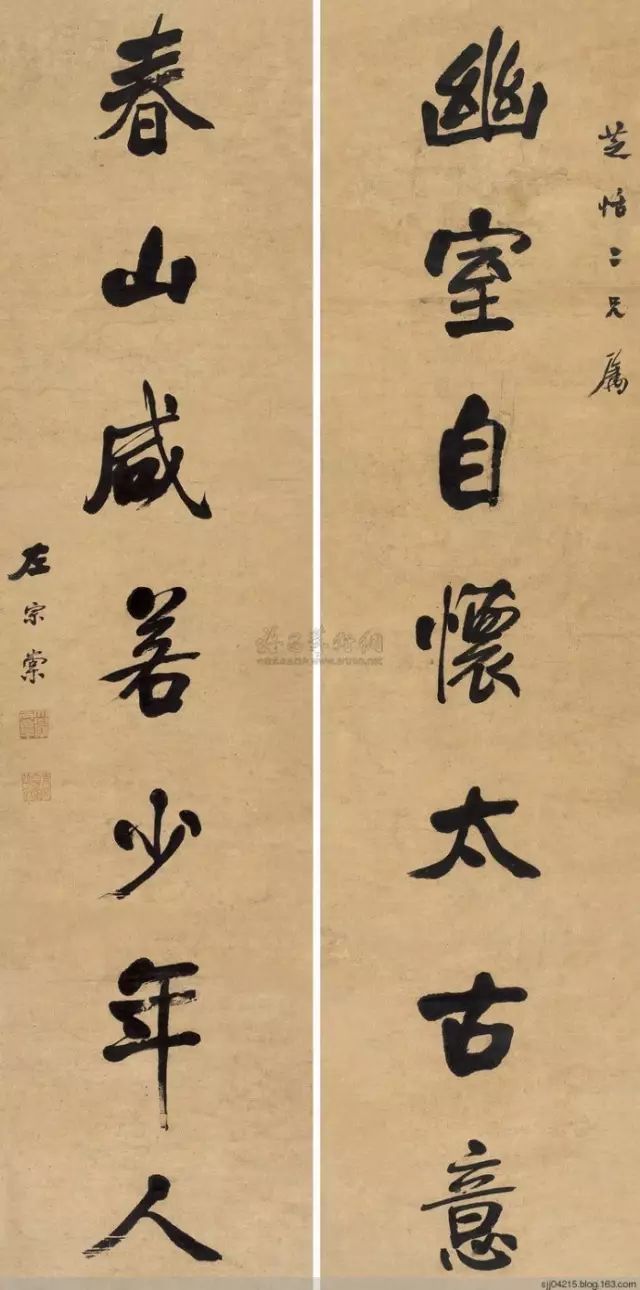 芝恬二兄属
幽室自懷太古意
春山咸若少年人
左宗棠
sjj04215.blog.163.com